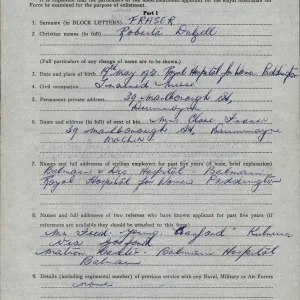 Air Force be examined for the purpose of enlistment.
Part I
1. Surname (in BLOCK LETTERS) FRASER
2. Christian names (in full) Roberta Dalzell
(Full particulars of any change of name are to be shown.)
3. Date and place of birth Royal Hospital for Women Paddington
4. Civil occupation Trained Nurse
5. Permanent private address 39 Marlborough St,
Drummoyne
6. Name and address (in full) of next of kin Mrs Fraser
39 Marlborough St, Drummoyne
Mother
7. Names and full addresses of civilian employers for past five years (if none, brief explanation)
Balmain & Dis Hospital Balmain
Royal Hospital for Women Paddington
8. Names and full addresses of two referees who have known applicant for past five years (if
references are available they should be attached to this form)
Mr Fred Young
Via Gosford
Matron Balmain Hospital
Balmain
9. Details (including regimental number) of previous service with any Naval, Military or Air Forces
None